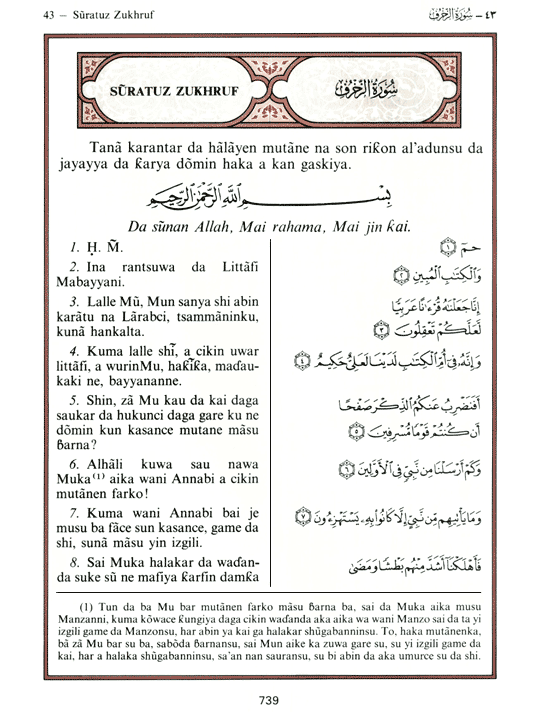 43 — Sũratuz Zukhruf
٤٣ — سُورَةُ الزُّخْرُفِ
SŨRATUZ ZUKHRUF
سُورَةُ الزُّخْرُفِ
Tanã karantar da hãlãyen mutãne na son riƙon al'adunsu da
jayayya da ƙarya dõmin haka a kan gaskiya.
بِسْمِ اللَّهِ الرَّحْمَٰنِ الرَّحِيمِ
Da sũnan Allah, Mai rahama, Mai jin ƙai.
1. Ḥ. M̃.
2. Ina rantsuwa da Littãfi
Mabayyani.
3. Lalle Mũ, Mun sanya shi abin
karãtu na Lãrabci, tsammãninku,
kunã hankalta.
4. Kuma lalle shĩ, a cikin uwar
littãfi, a wurinMu, haƙĩƙa, maɗau-
kaki ne, bayyananne.
5. Shin, zã Mu kau da kai daga
saukar da hukunci daga gare ku ne
dõmin kun kasance mutane mãsu
ɓarna?
6. Alhãli kuwa sau nawa
Muka⁽¹⁾ aika wani Annabi a cikin
mutãnen farko!
7. Kuma wani Annabi bai je
musu ba fãce sun kasance, game da
shi, sunã mãsu yin izgili.
8. Sai Muka halakar da waɗan-
da suke sũ ne mafiya ƙarfin damƙa
حمٓ ١
وَٱلْكِتَٰبِ ٱلْمُبِينِ ٢
إِنَّا جَعَلْنَٰهُ قُرْءَٰنًا عَرَبِيًّا
لَّعَلَّكُمْ تَعْقِلُونَ ٣
وَإِنَّهُۥ فِىٓ أُمِّ ٱلْكِتَٰبِ لَدَيْنَا لَعَلِىٌّ حَكِيمٌ ٤
أَفَنَضْرِبُ عَنكُمُ ٱلذِّكْرَ صَفْحًا
أَن كُنتُمْ قَوْمًا مُّسْرِفِينَ ٥
وَكَمْ أَرْسَلْنَا مِن نَّبِىٍّ فِى ٱلْأَوَّلِينَ ٦
وَمَا يَأْتِيهِم مِّن نَّبِىٍّ إِلَّا كَانُوا۟ بِهِۦ يَسْتَهْزِءُونَ ٧
فَأَهْلَكْنَآ أَشَدَّ مِنْهُم بَطْشًا وَمَضَىٰ
(1) Tun da ba Mu bar mutãnen farko mãsu ɓarna ba, sai da Muka aika musu
Manzanni, kuma kõwace ƙungiya daga cikin waɗanda aka aika wa wani Manzo sai da ta yi
izgili game da Manzonsu, har abin ya kai ga halakar shũgabanninsu. To, haka mutãnenka,
bã zã Mu bar su ba, sabõda ɓarnansu, sai Mun aike ka zuwa gare su, su yi izgili game da
kai, har a halaka shũgabanninsu, sa'an nan sauransu, su bi abin da aka umurce su da shi.
739